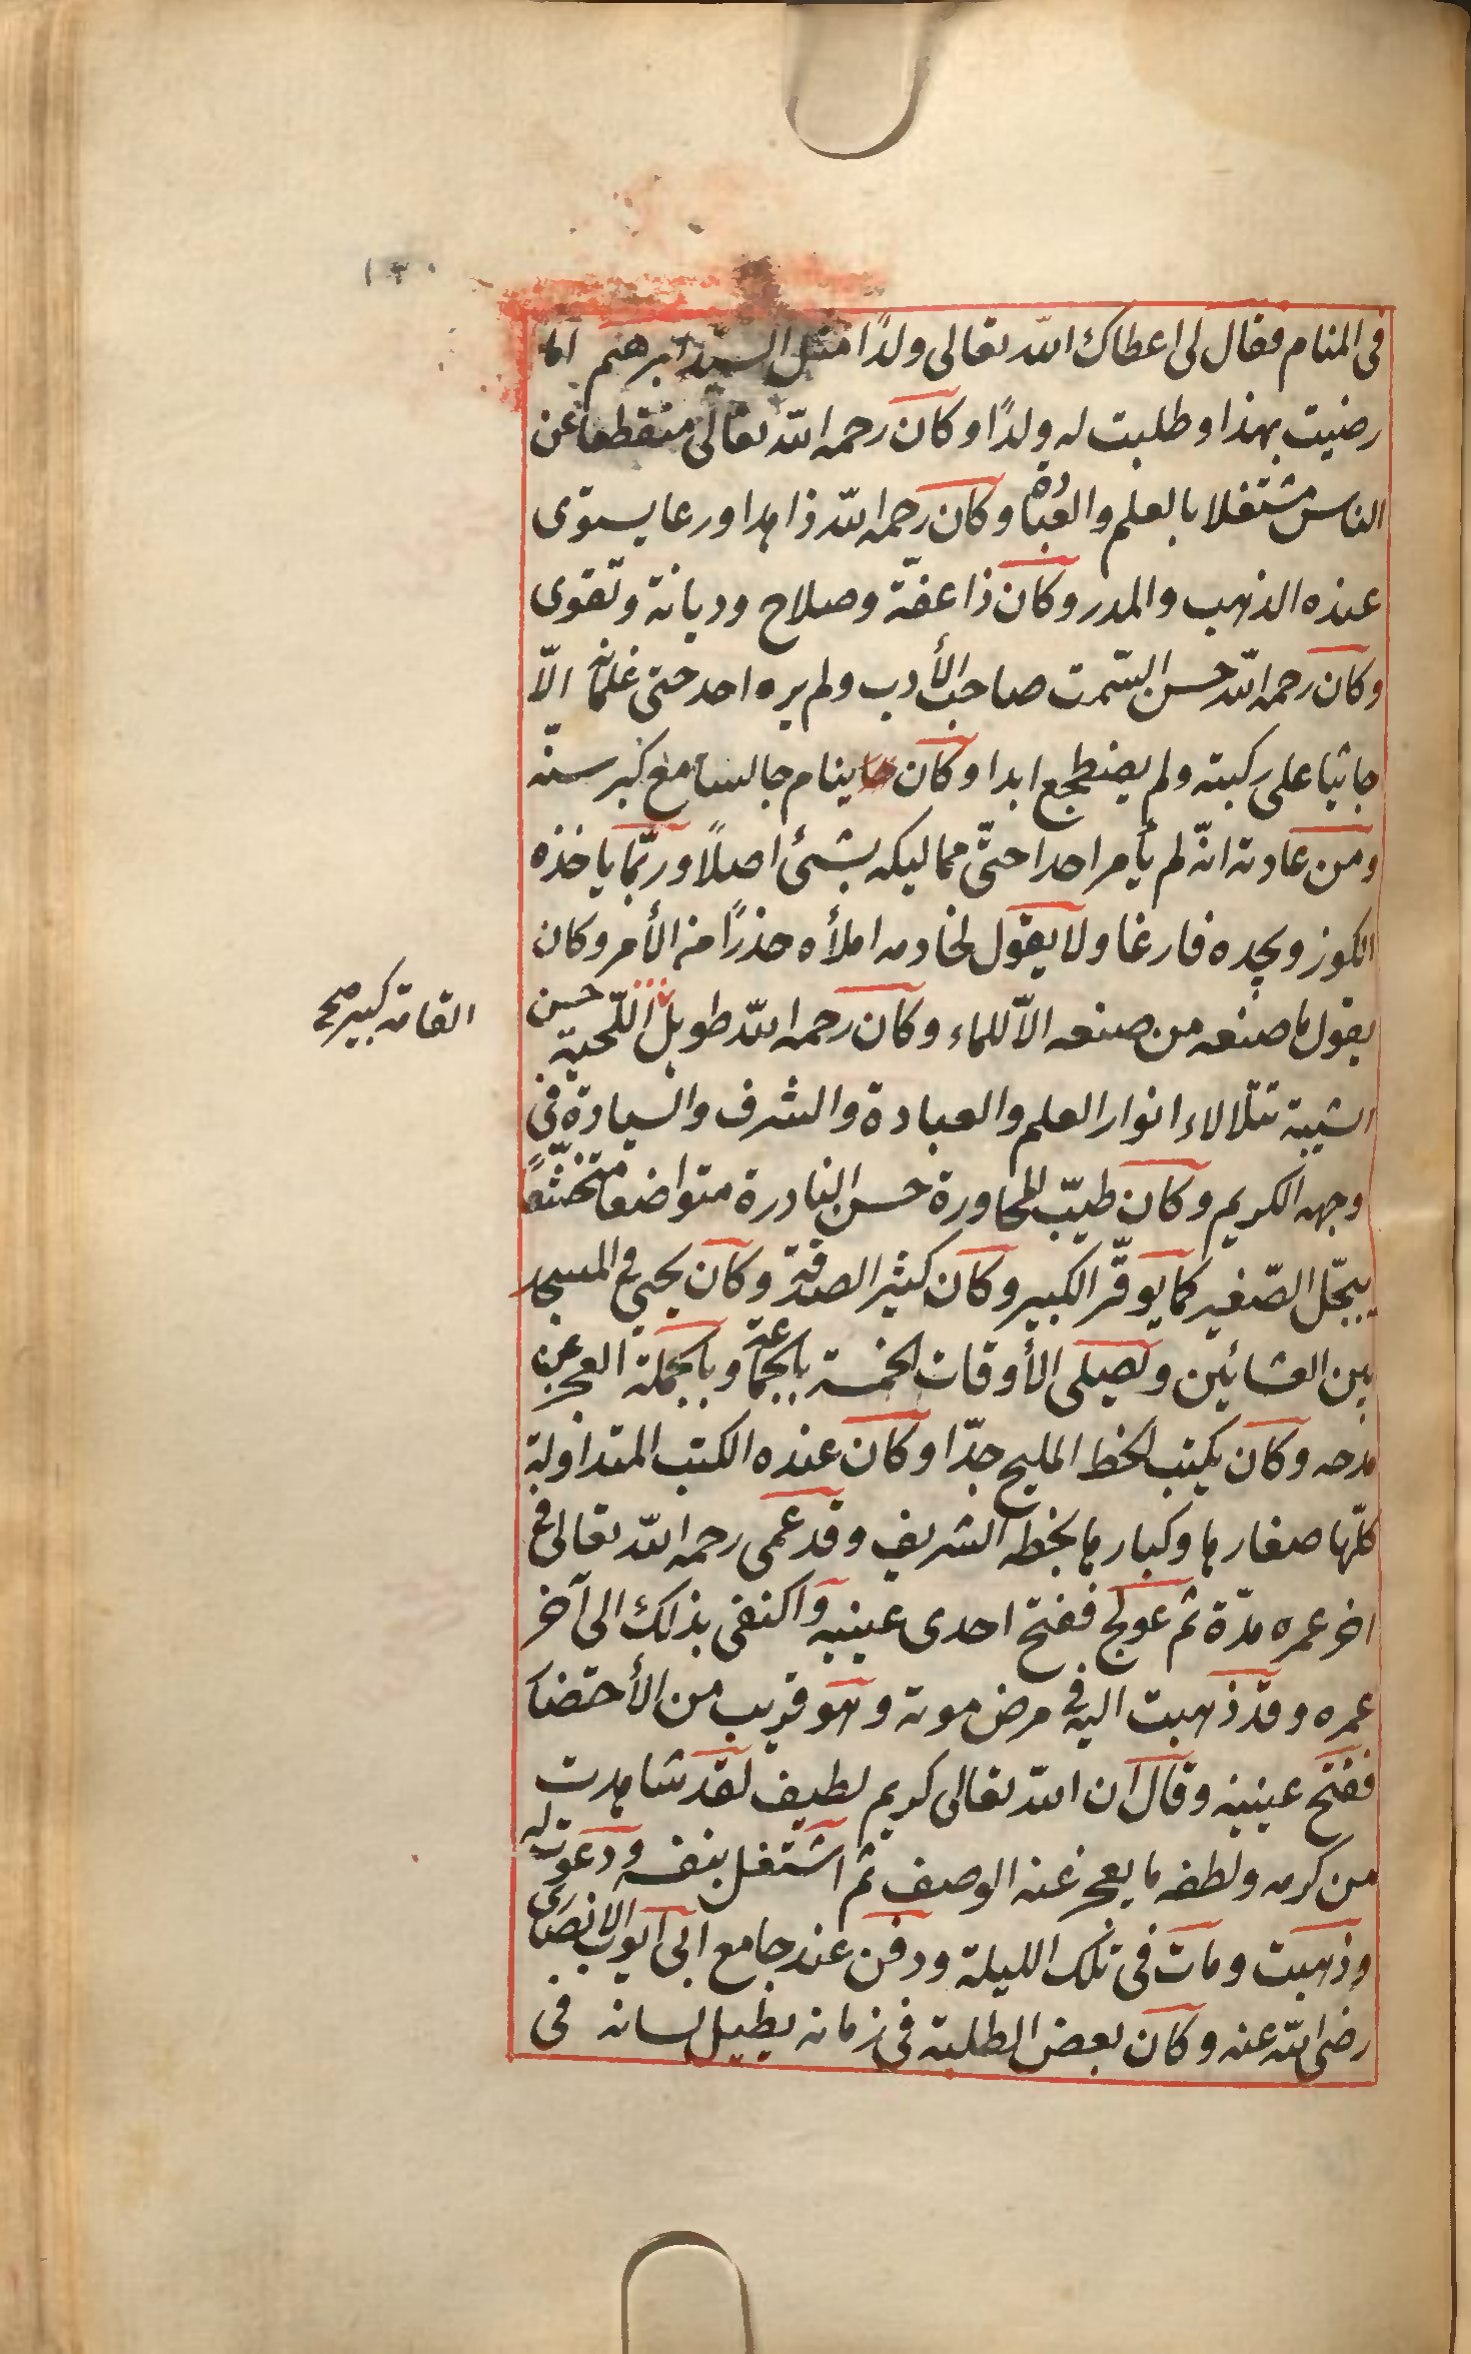 ١٣٠
فى المنام فقال لى اعطاك الله تعالى ولدًا مثل السيد ابرهيم اما
رضيت بهذا وطلبت له ولدًا وكان رحمه الله تعالى منقطعا عن
الناس مشتغلا بالعلم والعبادة وكان رحمه الله زاهدا ورعا يستوى
عنده الذهب والمدر وكان ذا عفة وصلاح وديانة وتقوى
وكان رحمه الله حسن السّمت صاحب الأدب ولم يره احد حتى غلمانه الّا
جاثيا على ركبتيه ولم يضطجع ابدا وكان ينام جالسا مع كبر سنّه
ومن عادته انّه لم يأمر احدا حتّى مماليكه بشئ اصلًا وربّما ياخذ
الكوز ويجده فارغا ولا يقول لخادمه املأه حذرًا من الأمر وكان
يقول ما صنعه من صنعه الّا للماء وكان رحمه الله طويل اللّحية حسن
القامة كبير صح
الشيبة تتلالاء انوار العلم والعبادة والشرف والسيادة فى
وجهه الكريم وكان طيّب المحاورة حسن النادرة متواضعا متخشّعًا
يبجّل الصّغير كما يوقّر الكبير وكان كثير الصدقة وكان يحيى فى المسجد
بين العشائين ويصلى الأوقات الخمسة بالجماعة وبالجملة العجز عن
مدحه وكان يكتب الخط المليح جدّا وكان عنده الكتب المتداولة
كلّها صغارها وكبارها بخطه الشريف وقد عمى رحمه الله تعالى فى
اخر عمره مدّة ثم عولج ففتح احدى عينيه واكتفى بذلك الى آخر
عمره وقد ذهبت اليه فى مرض موته وهو قريب من الأحتضا
ففتح عينيه وقال ان الله تعالى كريم لطيف لقد شاهدت
من كرمه ولطفه ما يعجز عنه الوصف ثم اشتغل بنفسه ودعوت له
وذهبت ومات فى تلك الليلة ودفن عند جامع ابى ايوب الانصارى
رضى الله عنه وكان بعض الطلبة فى زمانه يطيل لسانه فى